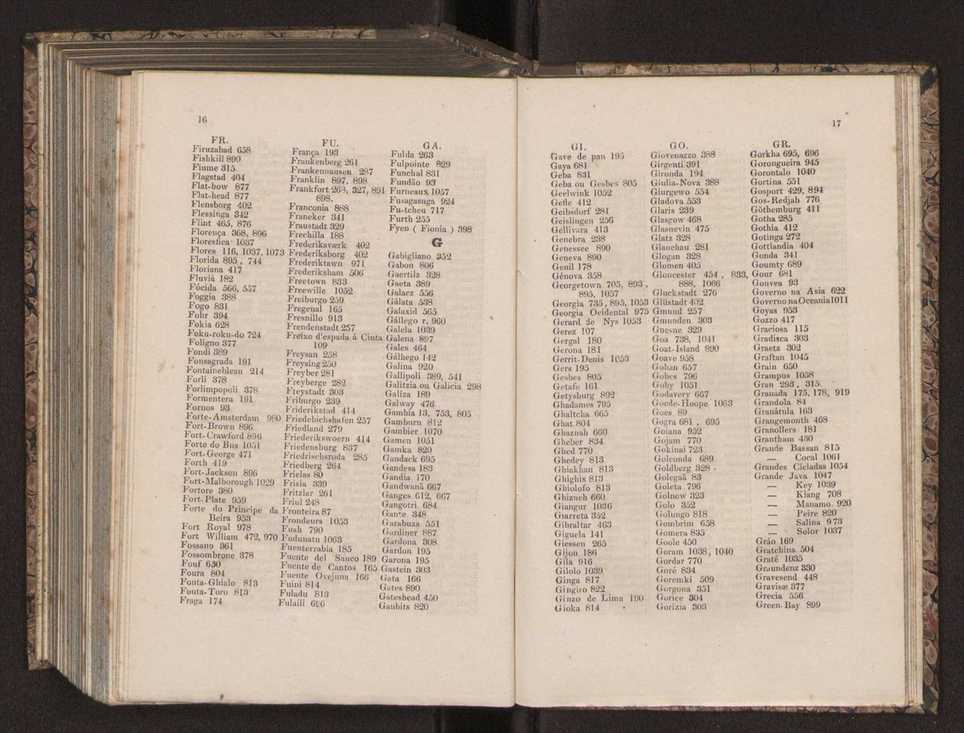 16
FR.
Firuzabad 658
Fishkill 890
Fiume 315
Flagstad 404
Flat-bow 877
Flat-head 877
Flensborg 402
Flessinga 342
Flint 465, 876
Florença 368, 896
Florestica 1037
Flores 116, 1037, 1073
Florida 895, 744
Floriana 417
Fluviá 182
Fócida 566, 557
Foggia 388
Fogo 831
Fohr 394
Fokia 628
Foku-roku-do 724
Foligno 377
Fondi 389
Fonsagrada 191
Fontainebleau 214
Forli 378
Forlimpopoli 378
Formentera 191
Fornos 93
Forte-Amsterdam 980
Fort-Brown 896
Fort-Crawford 896
Forte do Bus 1051
Fort-George 471
Forth 419
Fort-Jackson 896
Fort-Malborough 1029
Fortore 380
Fort-Plate 959
Forte do Principe da
Beira 953
Fort Royal 978
Fort William 472, 970
Fossano 361
Fossombrone 378
Fouf 630
Foura 804
Fouta-Ghialo 813
Fouta-Toro 813
Fraga 174
FU.
França 193
Frankenberg 261
Frankenmausen 287
Franklin 897, 898
Frankfort 263, 327, 891
898.
Franconia 888
Franeker 341
Fraustadt 329
Frechilla 188
Frederiksværk 402
Frederiksborg 402
Frederiktawn 971
Frederiksham 506
Freetown 833
Freewille 1052
Freiburgo 259
Fregenal 165
Fresnillo 913
Frendenstadt 257
Freixo d'espada á Cinta
109
Freysan 258
Freysing 250
Freyber 281
Freyberge 282
Freystadt 303
Friburgo 239
Friderikstad 414
Friedebichshafen 257
Friedland 279
Friederikswoern 414
Friedensburg 837
Friedrischsroda 285
Friedberg 264
Frielas 80
Frisia 339
Fritzlar 261
Friul 248
Fronteira 87
Frondeurs 1053
Fush 790
Fudunatu 1063
Fuenterrabia 185
Fuente del Sauco 189
Fuente de Cantos 165
Fuente Ovejuna 166
Fuini 814
Fuladu 813
Fulaili 696
GA.
Fulda 263
Fulpointe 829
Funchal 831
Fundão 93
Furneaux 1057
Fusagasuga 924
Fu-tcheu 717
Furth 255
Fyen ( Fionia ) 398
G
Gabigliano 352
Gabon 806
Gaertila 328
Gaeta 389
Galacz 556
Gálata 538
Galaxid 565
Gállego r. 960
Galela 1039
Galena 897
Gales 464
Gálhego 142
Galina 920
Gallipoli 389, 541
Galitzia ou Galicia 298
Galiza 189
Galway 476
Gambia 13, 753, 805
Gamburu 812
Gambier 1070
Gamen 1051
Gamka 820
Gandack 695
Gandesa 183
Gandia 170
Gandwaná 667
Ganges 612, 667
Gangotri 684
Gante 348
Garabuza 551
Gardiner 887
Gardona 308
Gardon 195
Garona 195
Gastein 303
Gata 166
Gates 890
Gateshead 450
Gauhits 820
17
GI.
Gave de pau 195
Gaya 681
Geba 831
Geba ou Gesbes 805
Geelwink 1052
Gefle 412
Geibsdorf 281
Geislingen 256
Gellivara 413
Genebra 238
Genessee 890
Geneva 890
Genil 178
Génova 358
Georgetown 705, 893,
895, 1057
Georgia 735, 895, 1053
Georgia Ocidental 975
Gerard de Nys 1053
Gerez 107
Gergal 180
Gerona 181
Gerrit-Denis 1053
Gers 195
Gesbes 805
Getafe 161
Getysburg 892
Ghadames 795
Ghaltcha 665
Ghat 804
Ghaznah 660
Gheber 834
Ghed 770
Ghedey 813
Ghiakhan 813
Ghighis 813
Ghiolofo 813
Ghizneh 660
Giangur 1036
Giarreta 352
Gibraltar 463
Giguela 141
Giessen 265
Gijon 186
Gila 916
Gilolo 1039
Ginga 817
Gingiro 822
Ginzo de Lima 190
Gioka 814
GO.
Giovenazzo 388
Girgenti 391
Gironda 194
Giulia-Nova 388
Giurgewo 554
Gladova 553
Glaris 239
Glasgow 468
Glasnevin 475
Glatz 328
Glauchau 281
Glogau 328
Glomen 405
Gloncester 454, 833,
888, 1066
Gluckstadt 276
Glüstadt 402
Gmund 257
Gmunden 303
Gnesne 329
Goa 738, 1041
Goat-Island 890
Goave 958
Gohan 657
Gobes 796
Goby 1051
Godavery 667
Goede-Hoope 1063
Goes 89
Gogra 681, 695
Goiana 952
Gojam 770
Gokinai 723
Golconda 689
Goldberg 328
Golegaã 83
Goleta 796
Golnow 323
Golo 352
Golungo 818
Gombrim 658
Gomera 835
Goole 450
Goram 1038, 1040
Gordar 770
Goré 834
Goremki 509
Gorgona 351
Gorice 304
Gorizia 303
GR.
Gorkha 695, 696
Gorongueira 945
Gorontalo 1040
Gortina 551
Gosport 429, 894
Gos-Redjah 776
Göthemburg 411
Gotha 285
Gothia 412
Gotinga 272
Gottlandia 404
Gounda 341
Goumty 689
Gour 681
Gouvea 93
Governo na Asia 622
Governo na Oceania 1011
Goyas 953
Gozzo 417
Graciosa 115
Gradisca 303
Graetz 302
Graftan 1045
Grain 650
Grampus 1058
Gran 293, 315
Granada 175, 178, 919
Grandola 84
Granátula 163
Grangemonth 468
Granollers 181
Grantham 430
Grande Bassan 815
— Cocal 1061
Grandes Cicladas 1054
Grande Java 1047
— Key 1039
— Klang 708
— Manamo 920
— Peire 820
— Salina 973
— Solor 1037
Grão 169
Gratchina 504
Graté 1035
Graundenz 330
Gravesend 448
Gravisæ 377
Grecia 556
Green-Bay 899